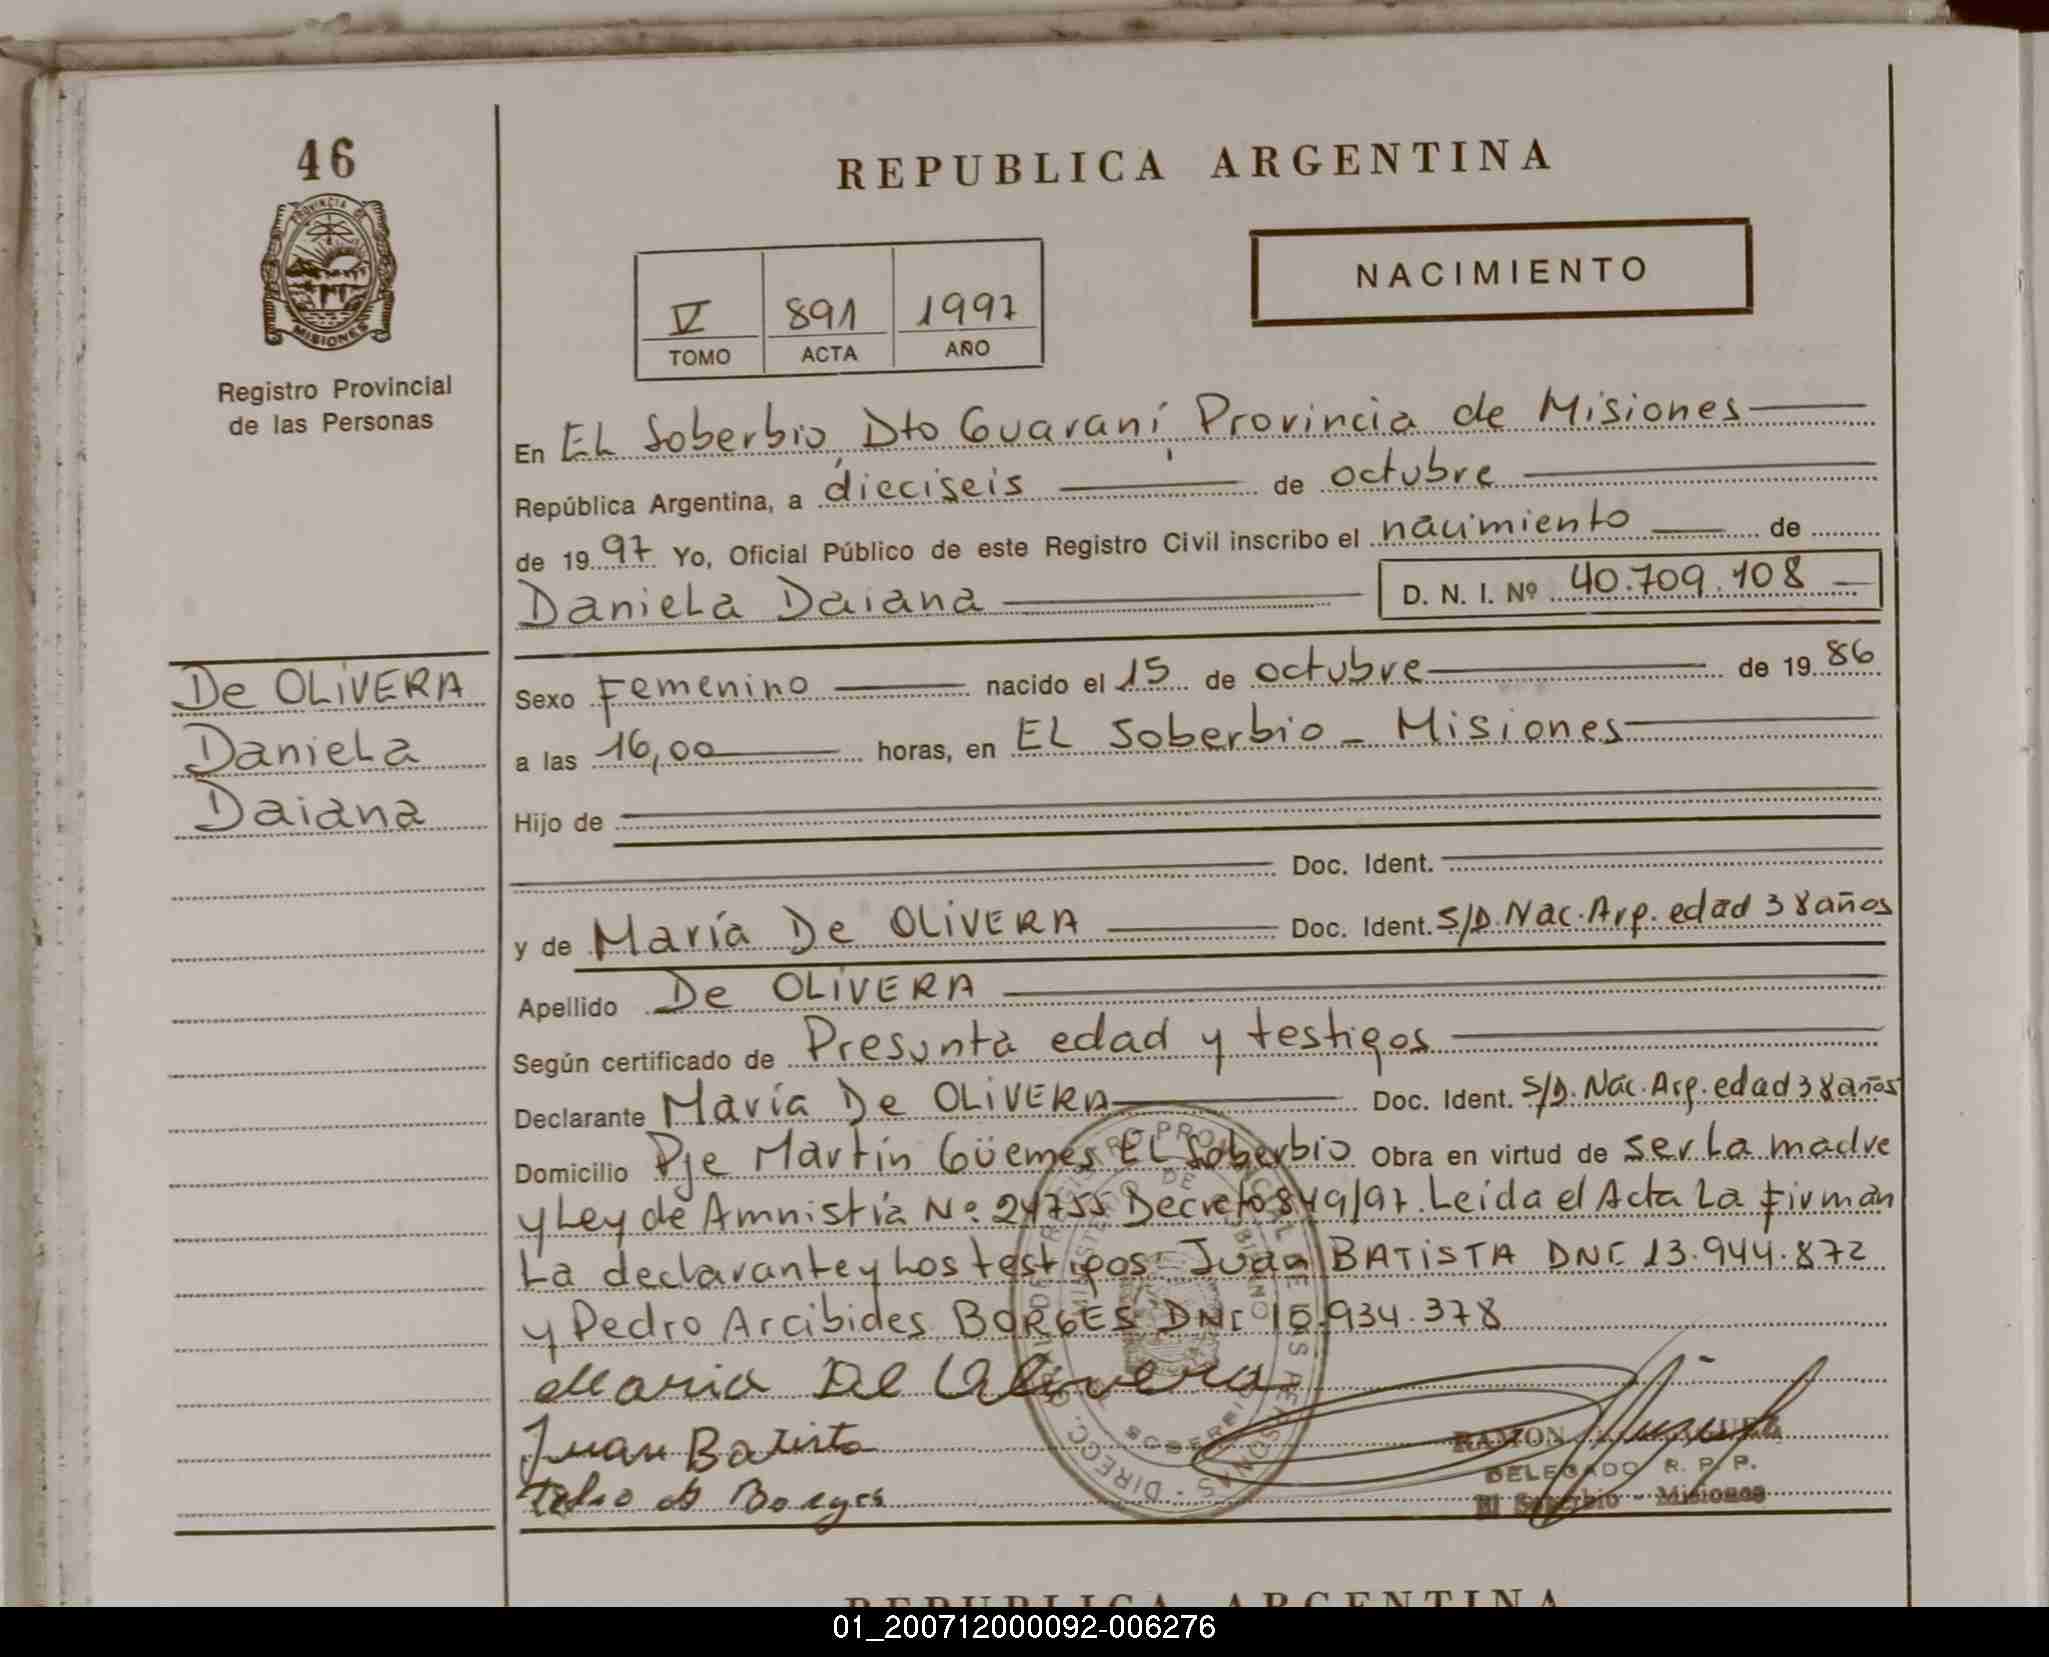 46
PROVINCIA DE
MISIONES
Registro Provincial
de las Personas
REPUBLICA ARGENTINA
NACIMIENTO
V 891 1997
TOMO ACTA AÑO
En EL Soberbio, Dto Guaraní, Provincia de Misiones
República Argentina, a dieciseis de octubre
de 1997 Yo, Oficial Público de este Registro Civil inscribo el nacimiento de
Daniela Daiana D. N. I. Nº 40.709.108
De OLIVERA
Daniela
Daiana
Sexo Femenino nacido el 15 de octubre de 1986
a las 16,00 horas, en EL Soberbio - Misiones
Hijo de
Doc. Ident.
y de María De OLIVERA Doc. Ident. S/D. Nac. Arg. edad 38 años
Apellido De OLIVERA
Según certificado de Presunta edad y testigos
Declarante María De OLIVERA Doc. Ident. S/D. Nac. Arg. edad 38 años
Domicilio Pje Martín Güemes EL Soberbio Obra en virtud de ser La madre
y Ley de Amnistía Nº 24755 Decreto 849/97. Leída el Acta La firman
La declarante y Los testigos: Juan BATISTA DNI 13.944.872
y Pedro Arcibides BORGES DNI 15.934.378
Maria De Olivera
Juan Batista
Pedro A Borges
RAMON
DELEGADO R. P. P.
El Soberbio - Misiones
REPUBLICA ARGENTINA
01_200712000092-006276